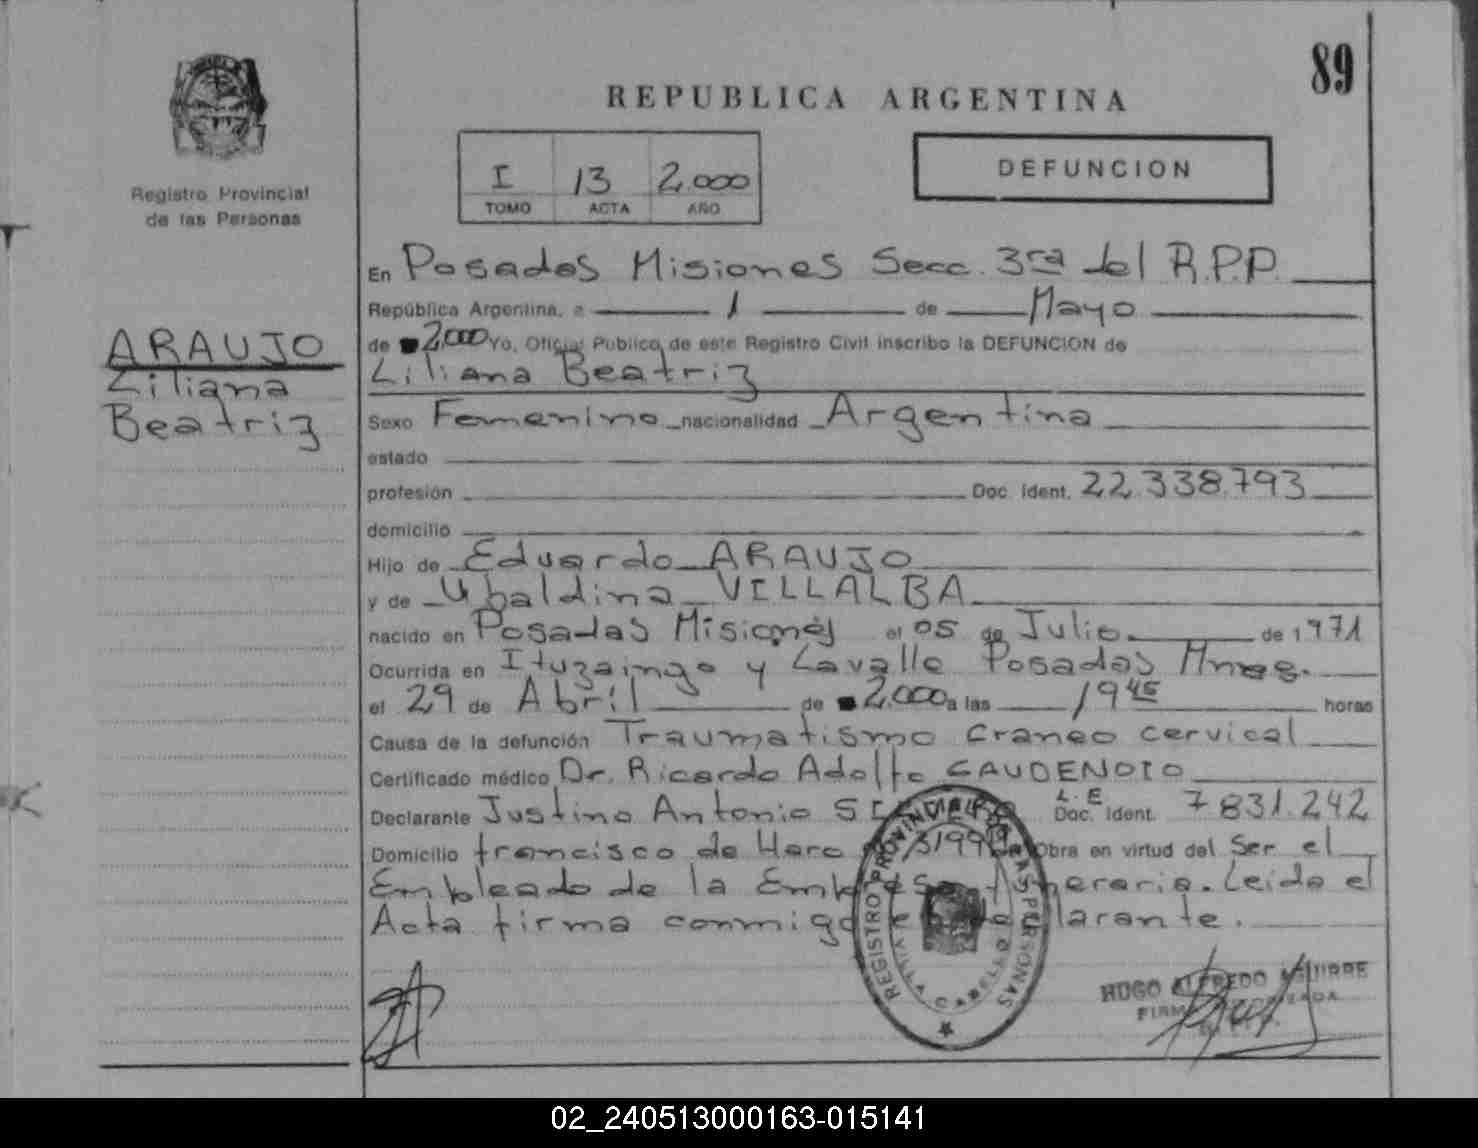 89
REPUBLICA ARGENTINA
DEFUNCION
I 13 2.000
TOMO ACTA AÑO
Registro Provincial
de las Personas
ARAUJO
Liliana
Beatriz
En Posadas Misiones Secc. 3ra del R.P.P.
República Argentina, a 1 de Mayo
de 2.000 Yo, Oficial Publico de este Registro Civil inscribo la DEFUNCION de
Liliana Beatriz
Sexo Femenino nacionalidad Argentina
estado
profesión Doc. Ident. 22.338.793
domicilio
Hijo de Eduardo ARAUJO
y de Ubaldina VILLALBA
nacido en Posadas Misiones el 05 de Julio de 1971
Ocurrida en Ituzaingo y Lavalle Posadas Mnes.
el 29 de Abril de 2.000 a las 19 45 horas
Causa de la defunción Traumatismo craneo cervical
Certificado médico Dr. Ricardo Adolfo
Declarante Justino Antonio L.E Doc. Ident. 7831.242
Domicilio francisco de Haro Obra en virtud del Ser el
Empleado de la Empresa funeraria. Leida el
Acta firma conmigo el declarante.
REGISTRO PROVINCIAL DE LAS PERSONAS
VILLA CABELLO
HUGO ALFREDO AGUIRRE
FIRMA AUTORIZADA
02_240513000163-015141